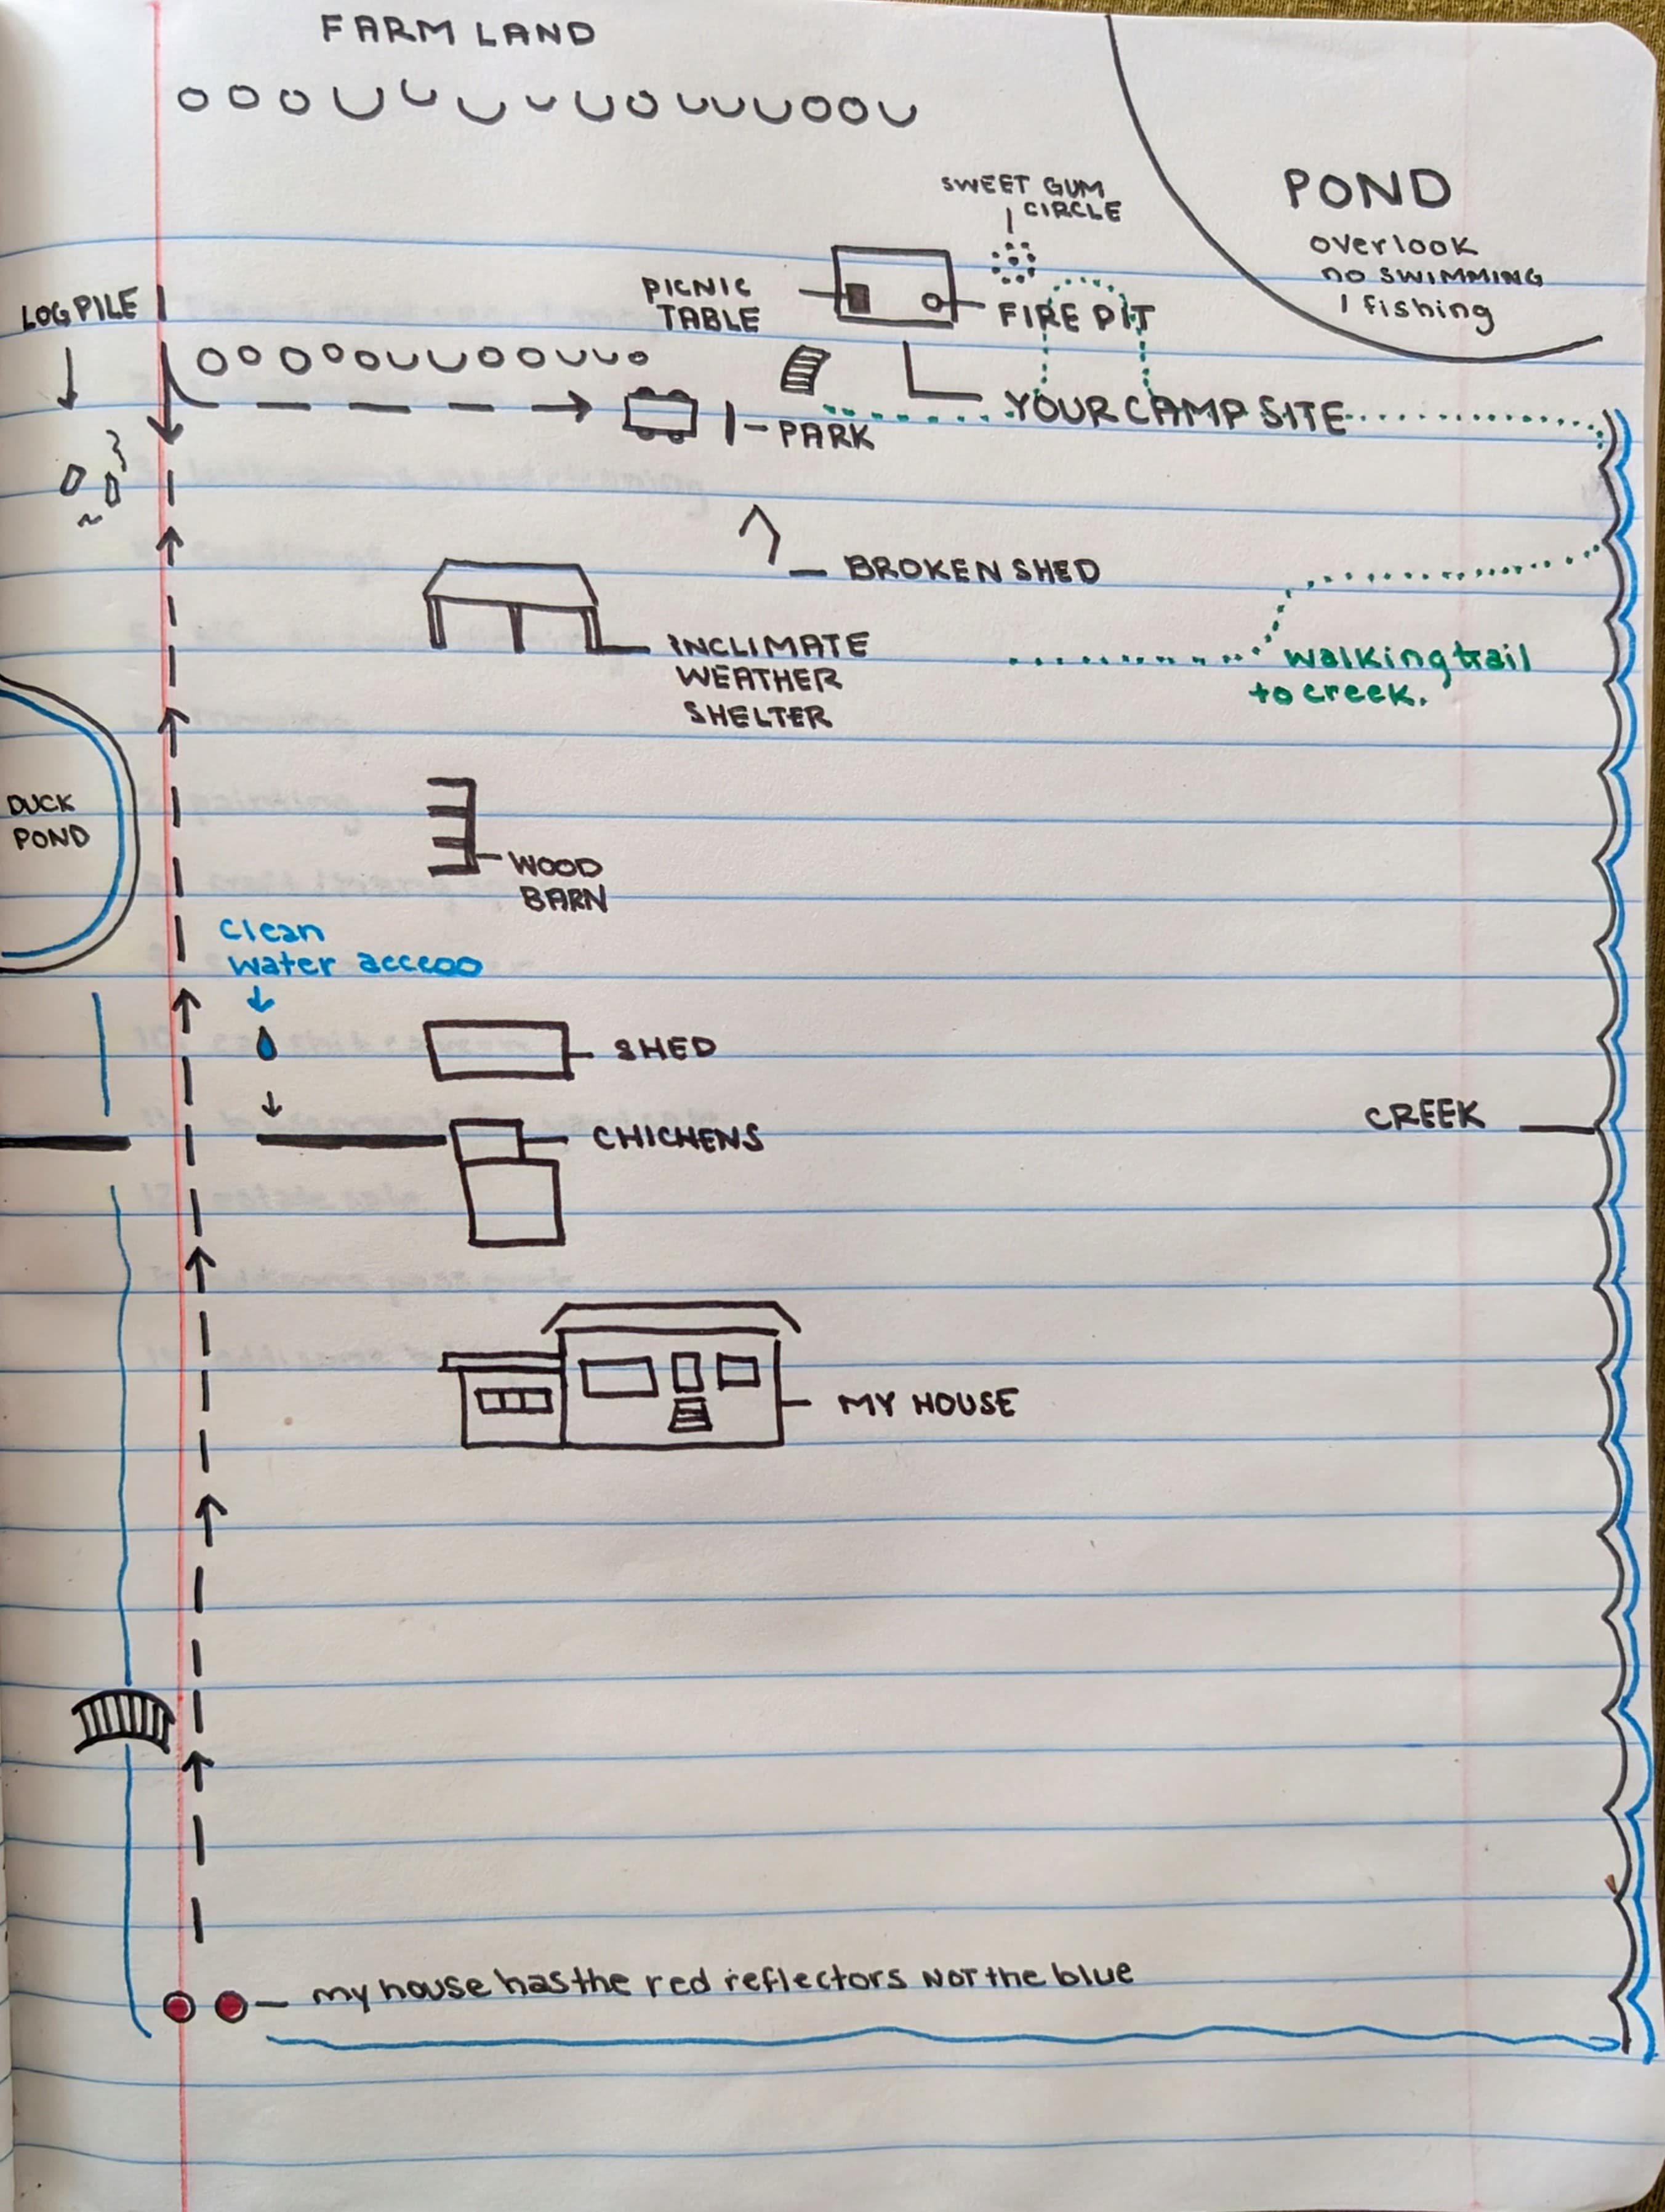 FARM LAND
SWEET GUM
CIRCLE
POND
overlook
no SWIMMING
/ fishing
PICNIC
TABLE
FIRE PIT
LOG PILE
YOUR CAMP SITE
PARK
BROKEN SHED
INCLIMATE
WEATHER
SHELTER
walking trail
to creek.
DUCK
POND
WOOD
BARN
Clean
water access
SHED
CREEK
CHICKENS
MY HOUSE
my house has the red reflectors NOT the blue